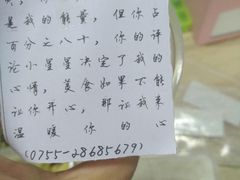 是我的能量，但你占
百分之八十，你的评
论小星星决定了我的
心情，美食如果不能
让你开心，那让我来
温暖你的心
(0755-28685679)